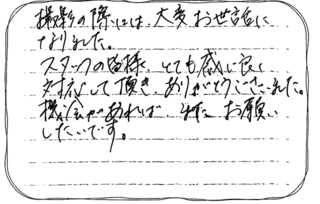 撮影の際には、大変お世話に
なりました。
スタッフの皆様、とても感じ良く
対応して頂き、ありがとうございました。
機会があれば、またお願い
したいです。